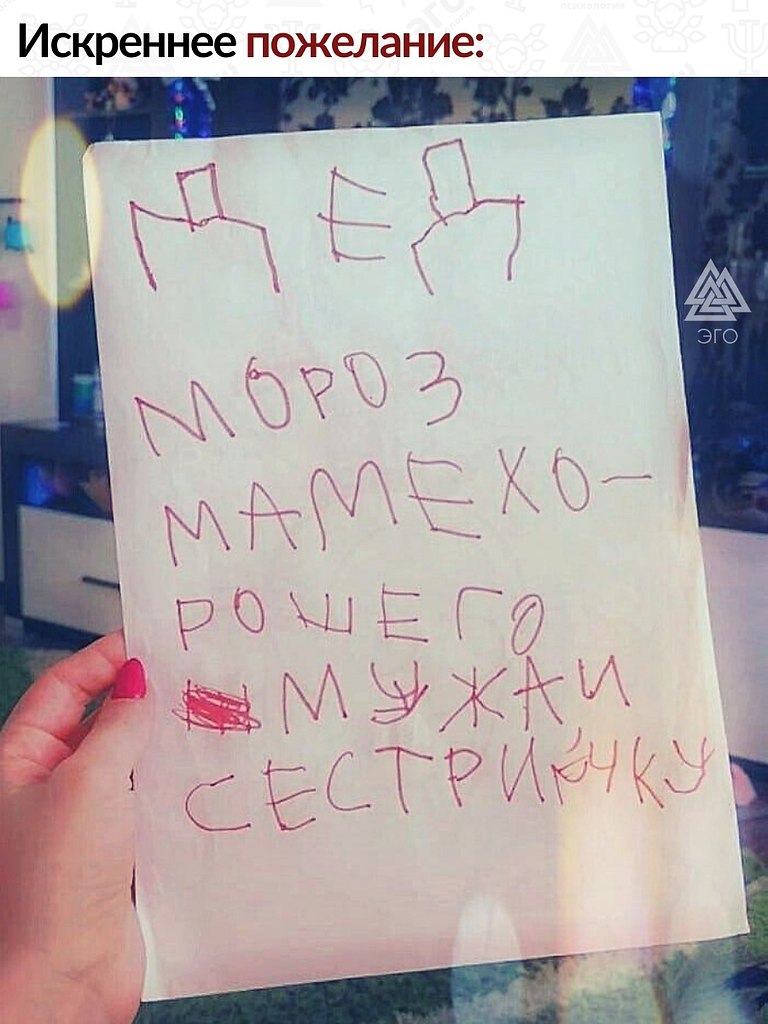 Искреннее пожелание:
ДЕД
МОРОЗ
МАМЕ ХО-
РОШЕГО
МУЖА И
СЕСТРИЧКУ
ЭГО